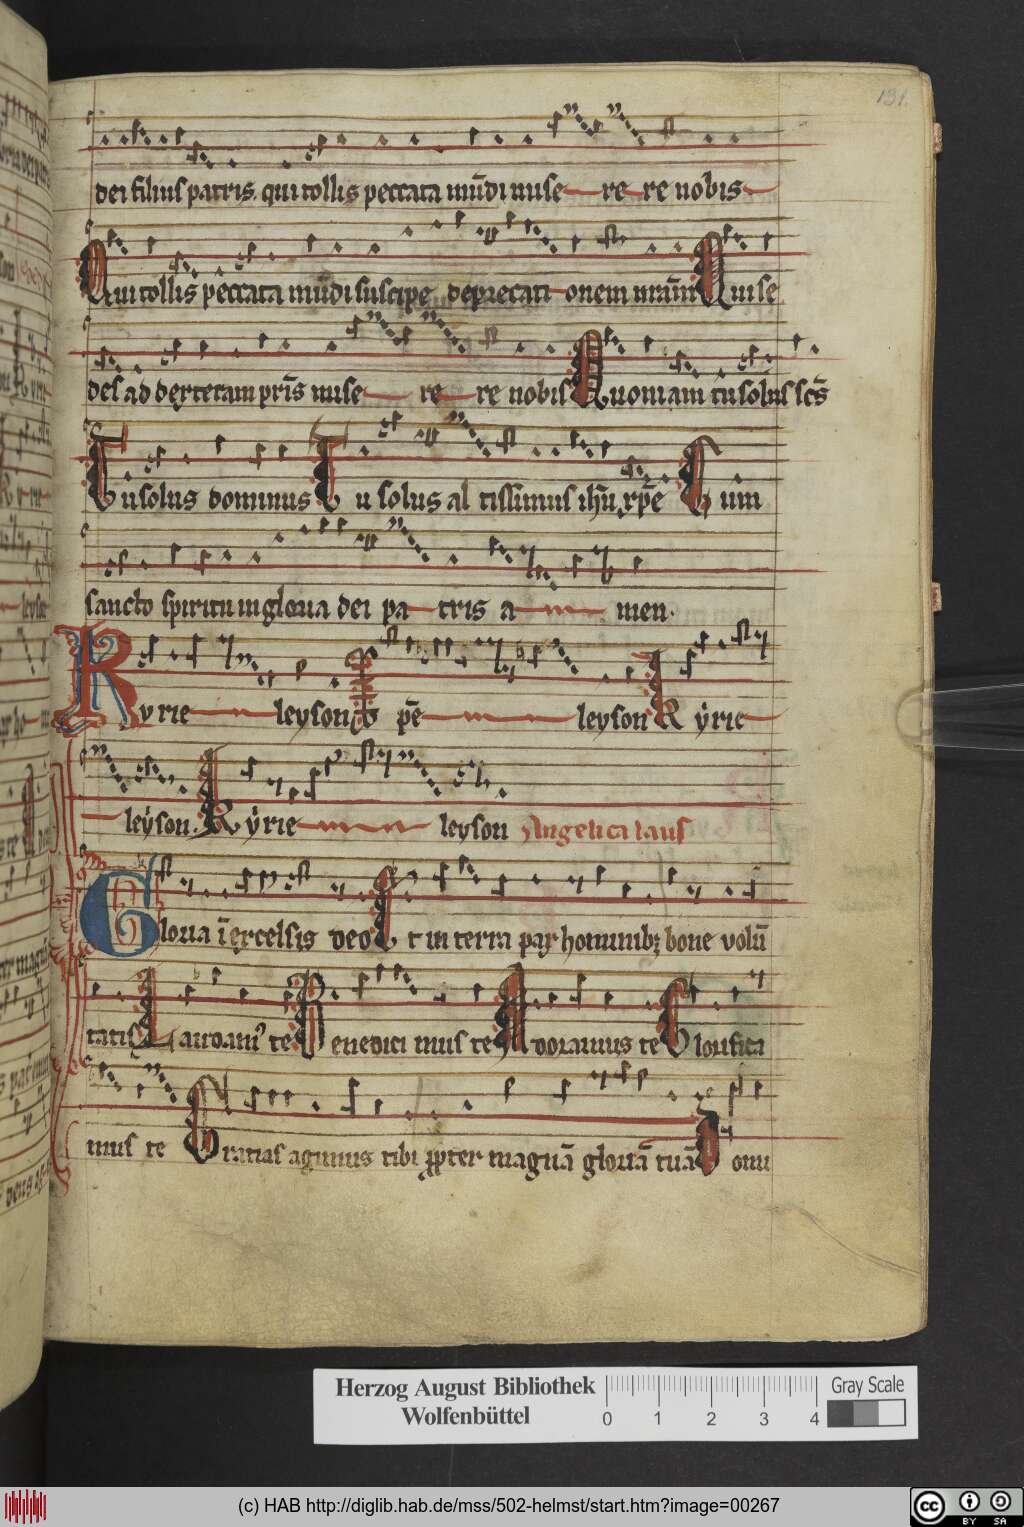 131.
dei filius patris. qui tollis peccata mūdi mise re re nobis
Qui tollis peccata mūdi suscipe deprecati onem nrām Qui se
des ad dexteram pr̄is mise re re nobis Quoniam tu solus scs̄
Tu solus dominus Tu solus al tissimus ihū xp̄e Cum
sancto spiritu in gloria dei pa tris a men.
Kyrie leyson xp̄e leyson Kyrie
leyson. Kyrie leyson Angelica laus
Gloria ī excelsis deo Et in terra pax hominib; bone volū
tatis Laudam9 te Benedici mus te Adoramus te Glorifica
mus te Gratias agimus tibi ꝓpter magnā gloriā tuā Domi
Herzog August Bibliothek
Wolfenbüttel
0 1 2 3 4
Gray Scale
(c) HAB http://diglib.hab.de/mss/502-helmst/start.htm?image=00267
cc BY SA